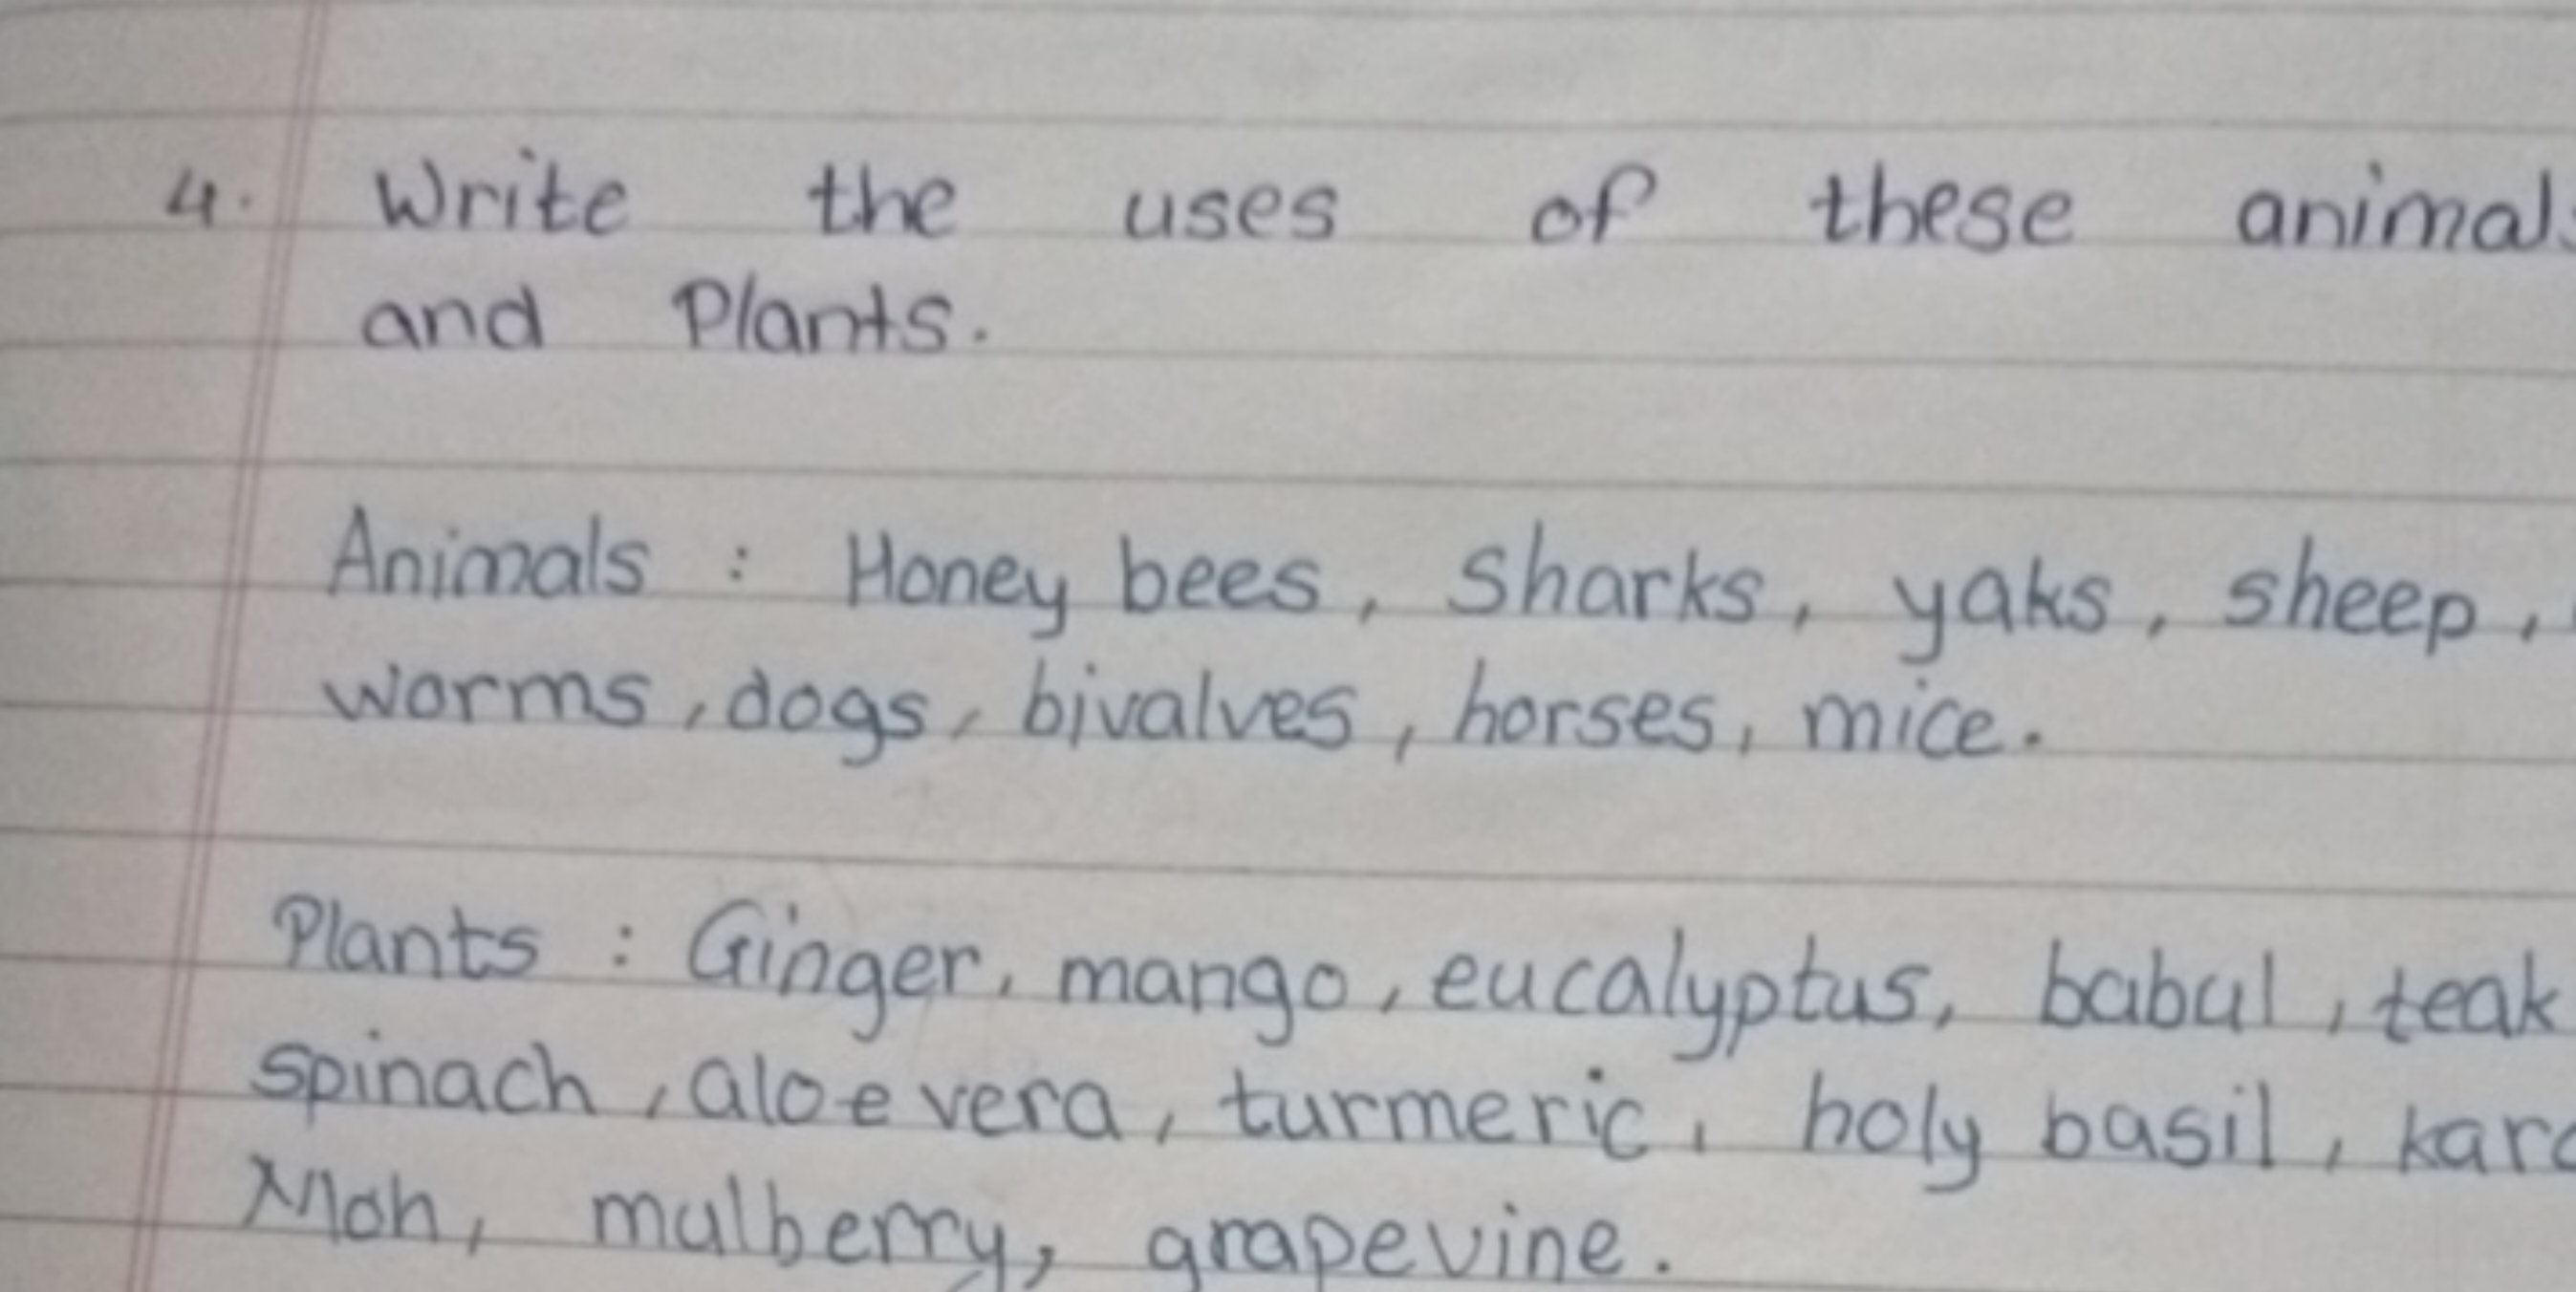 4. Write the uses of these animals
and Plants.
Animals : Honey bees, Sharks, yaks, sheep,
worms, dogs, bivalves, horses, mice.
Plants : Ginger, mango, eucalyptus, babul, teak
spinach, aloe vera, turmeric, holy basil,
Moh, mulberry, grapevine.